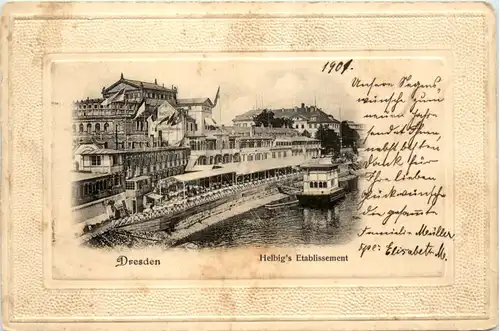 1901.
Unsere Segens
wünsche zum
neuen Jahre
sendet Ihnen
nebst besten
Dank für
Ihre lieben
Glückwünsche
die gesammte
Familie Müller
spec. Elisabeth M.
Dresden
Helbig's Etablissement